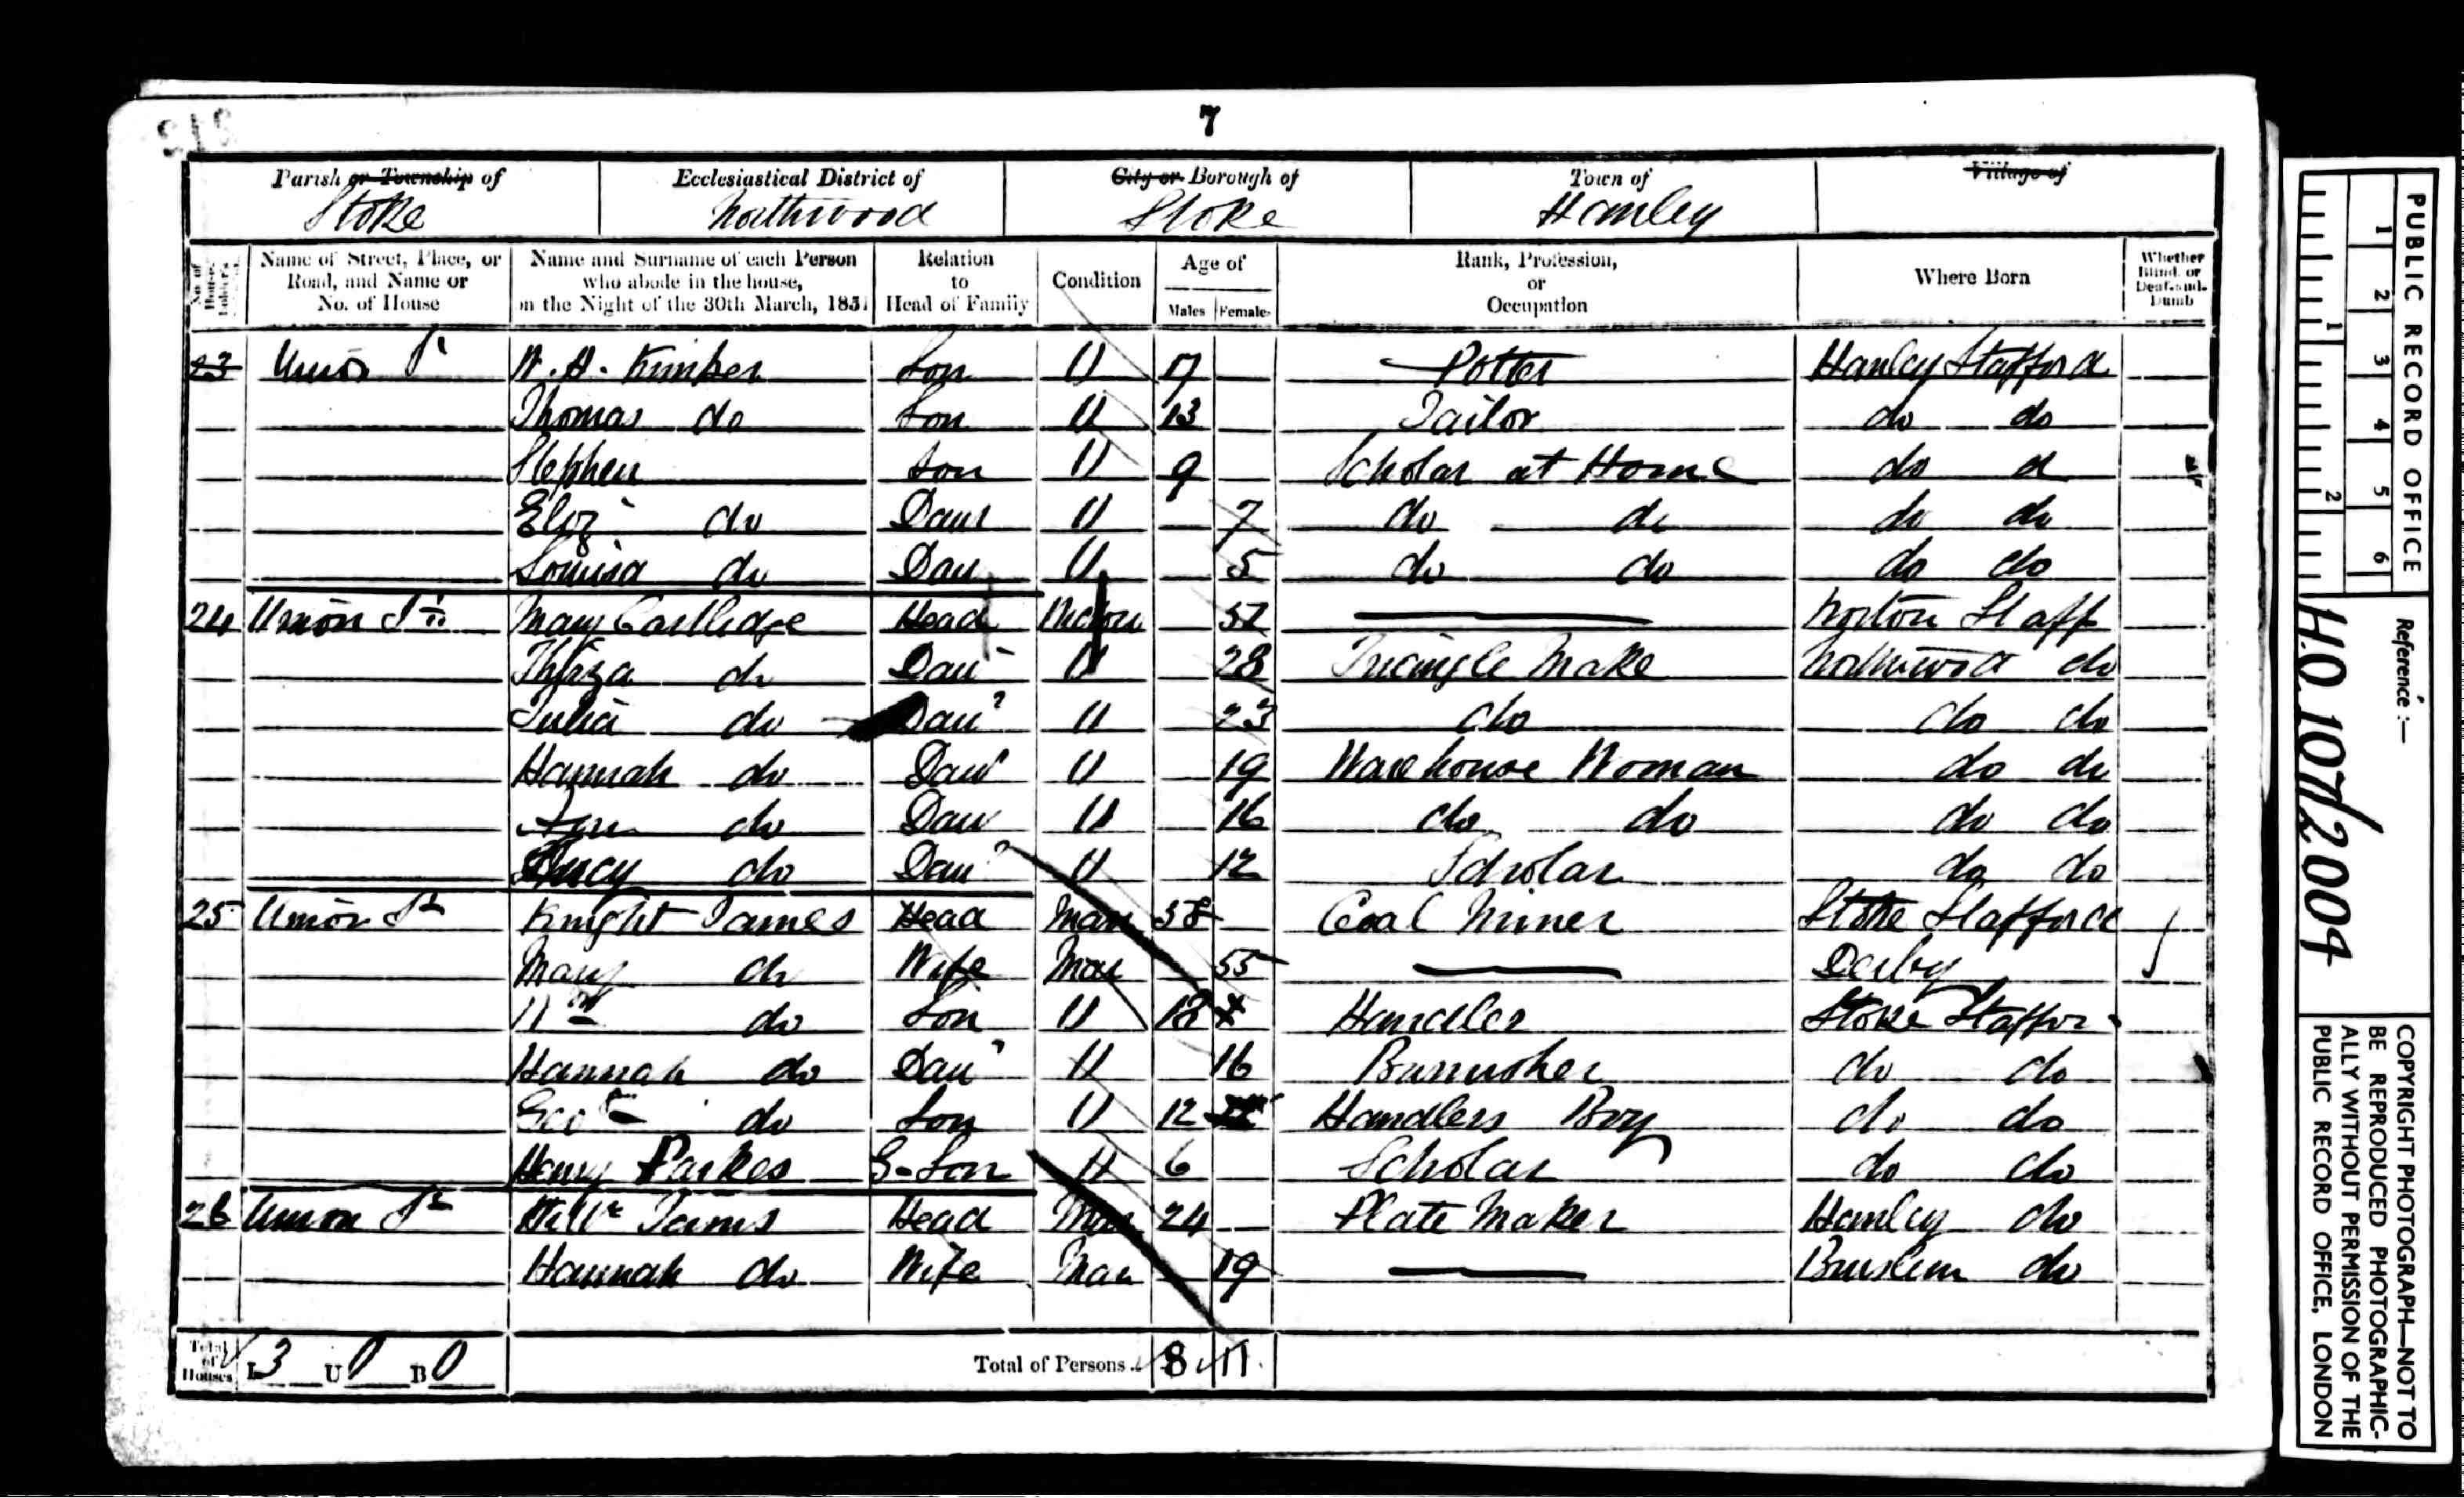 7
Parish or Township of Ecclesiastical District of City or Borough of Town of Village of
Stoke Northwood Stoke Hanley
No. of House-holder's Name of Street, Place, or Road, and Name or No. of House Name and Surname of each Person who abode in the house, on the Night of the 30th March, 1851 Relation to Head of Family Condition Age of Males Females Rank, Profession, or Occupation Where Born Whether Blind, or Deaf-and-Dumb
23 Union St W. H. Kimber Son U 17 Potter Hanley Stafford
Thomas do Son U 13 Tailor do do
Stephen Son U 9 Scholar at Home do d
Eliz do Daur U 7 do do do do
Louisa do Dau U 5 do do do do
24 Union St Mary Cartledge Head Widow Norton Staff
Thirza do Dau U 28 Triangle Make Northwood do
Julia do Dau U 23 do do do
Hannah do Dau U 19 Warehouse Woman do do
do Dau U 16 do do do do
do Dau U 12 Scholar do do
25 Union St Knight James Head Mar 58 Coal Miner Stoke Stafford
Mary do Wife Mar 55 Derby
Wm do Son U 18 Handler Stoke Staffor
Hannah do Dau U 16 Burnisher do do
Geo do Son U 12 Handlers Boy do do
Henry Parkes G-Son U 6 Scholar do do
26 Union St Willm Tams Head Mar 24 Plate Maker Hanley do
Hannah do Wife Mar 19 Burslem do
Total of Houses I 3 U 0 B 0 Total of Persons 8 11
PUBLIC RECORD OFFICE
1 2 3 4 5 6
1 2
Reference:-
H.O. 107/2004
COPYRIGHT PHOTOGRAPH—NOT TO
BE REPRODUCED PHOTOGRAPHIC-
ALLY WITHOUT PERMISSION OF THE
PUBLIC RECORD OFFICE, LONDON